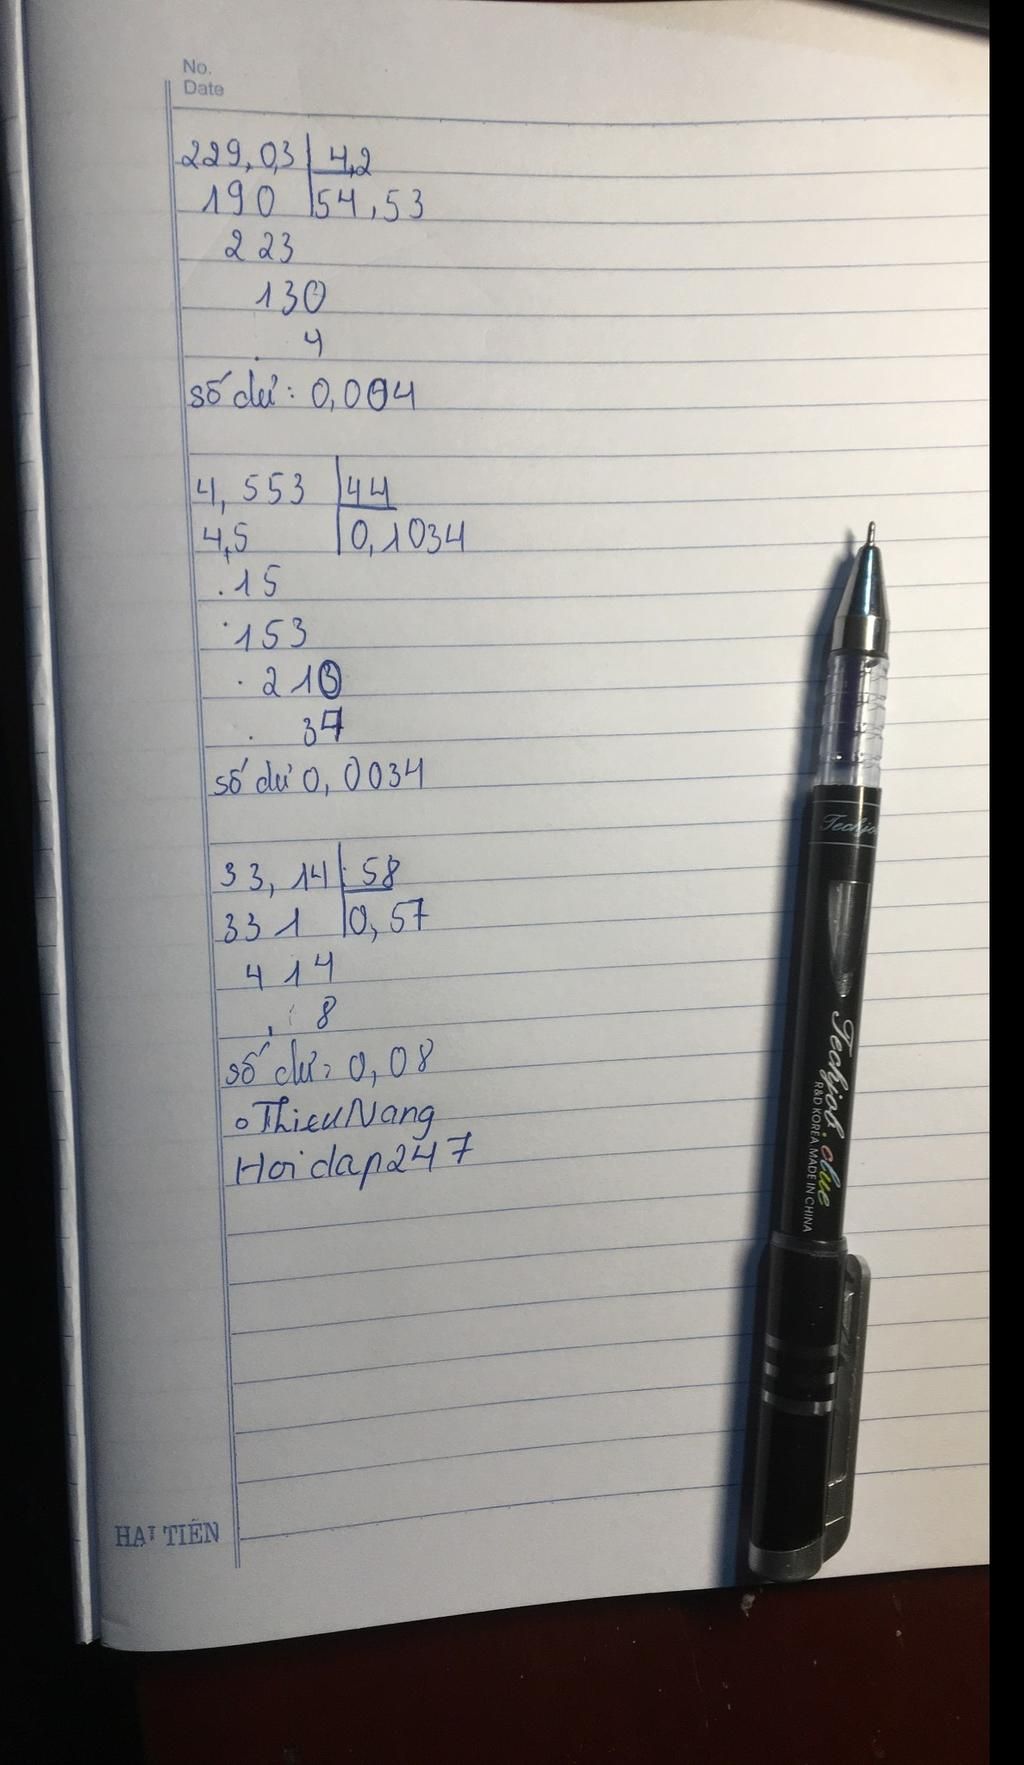 No.
Date
229,0,3 4,2
190 54,53
223
130
4
số dư: 0,004
4,553 44
4,5 0,1034
.15
.153
.210
. 37
số dư 0,0034
33,14 58
331 0,57
414
. 8
số dư: 0,08
ThieuNang
Hoidap247
Techjob
Techjob.clue
R&D KOREA MADE IN CHINA
HẢI TIẾN